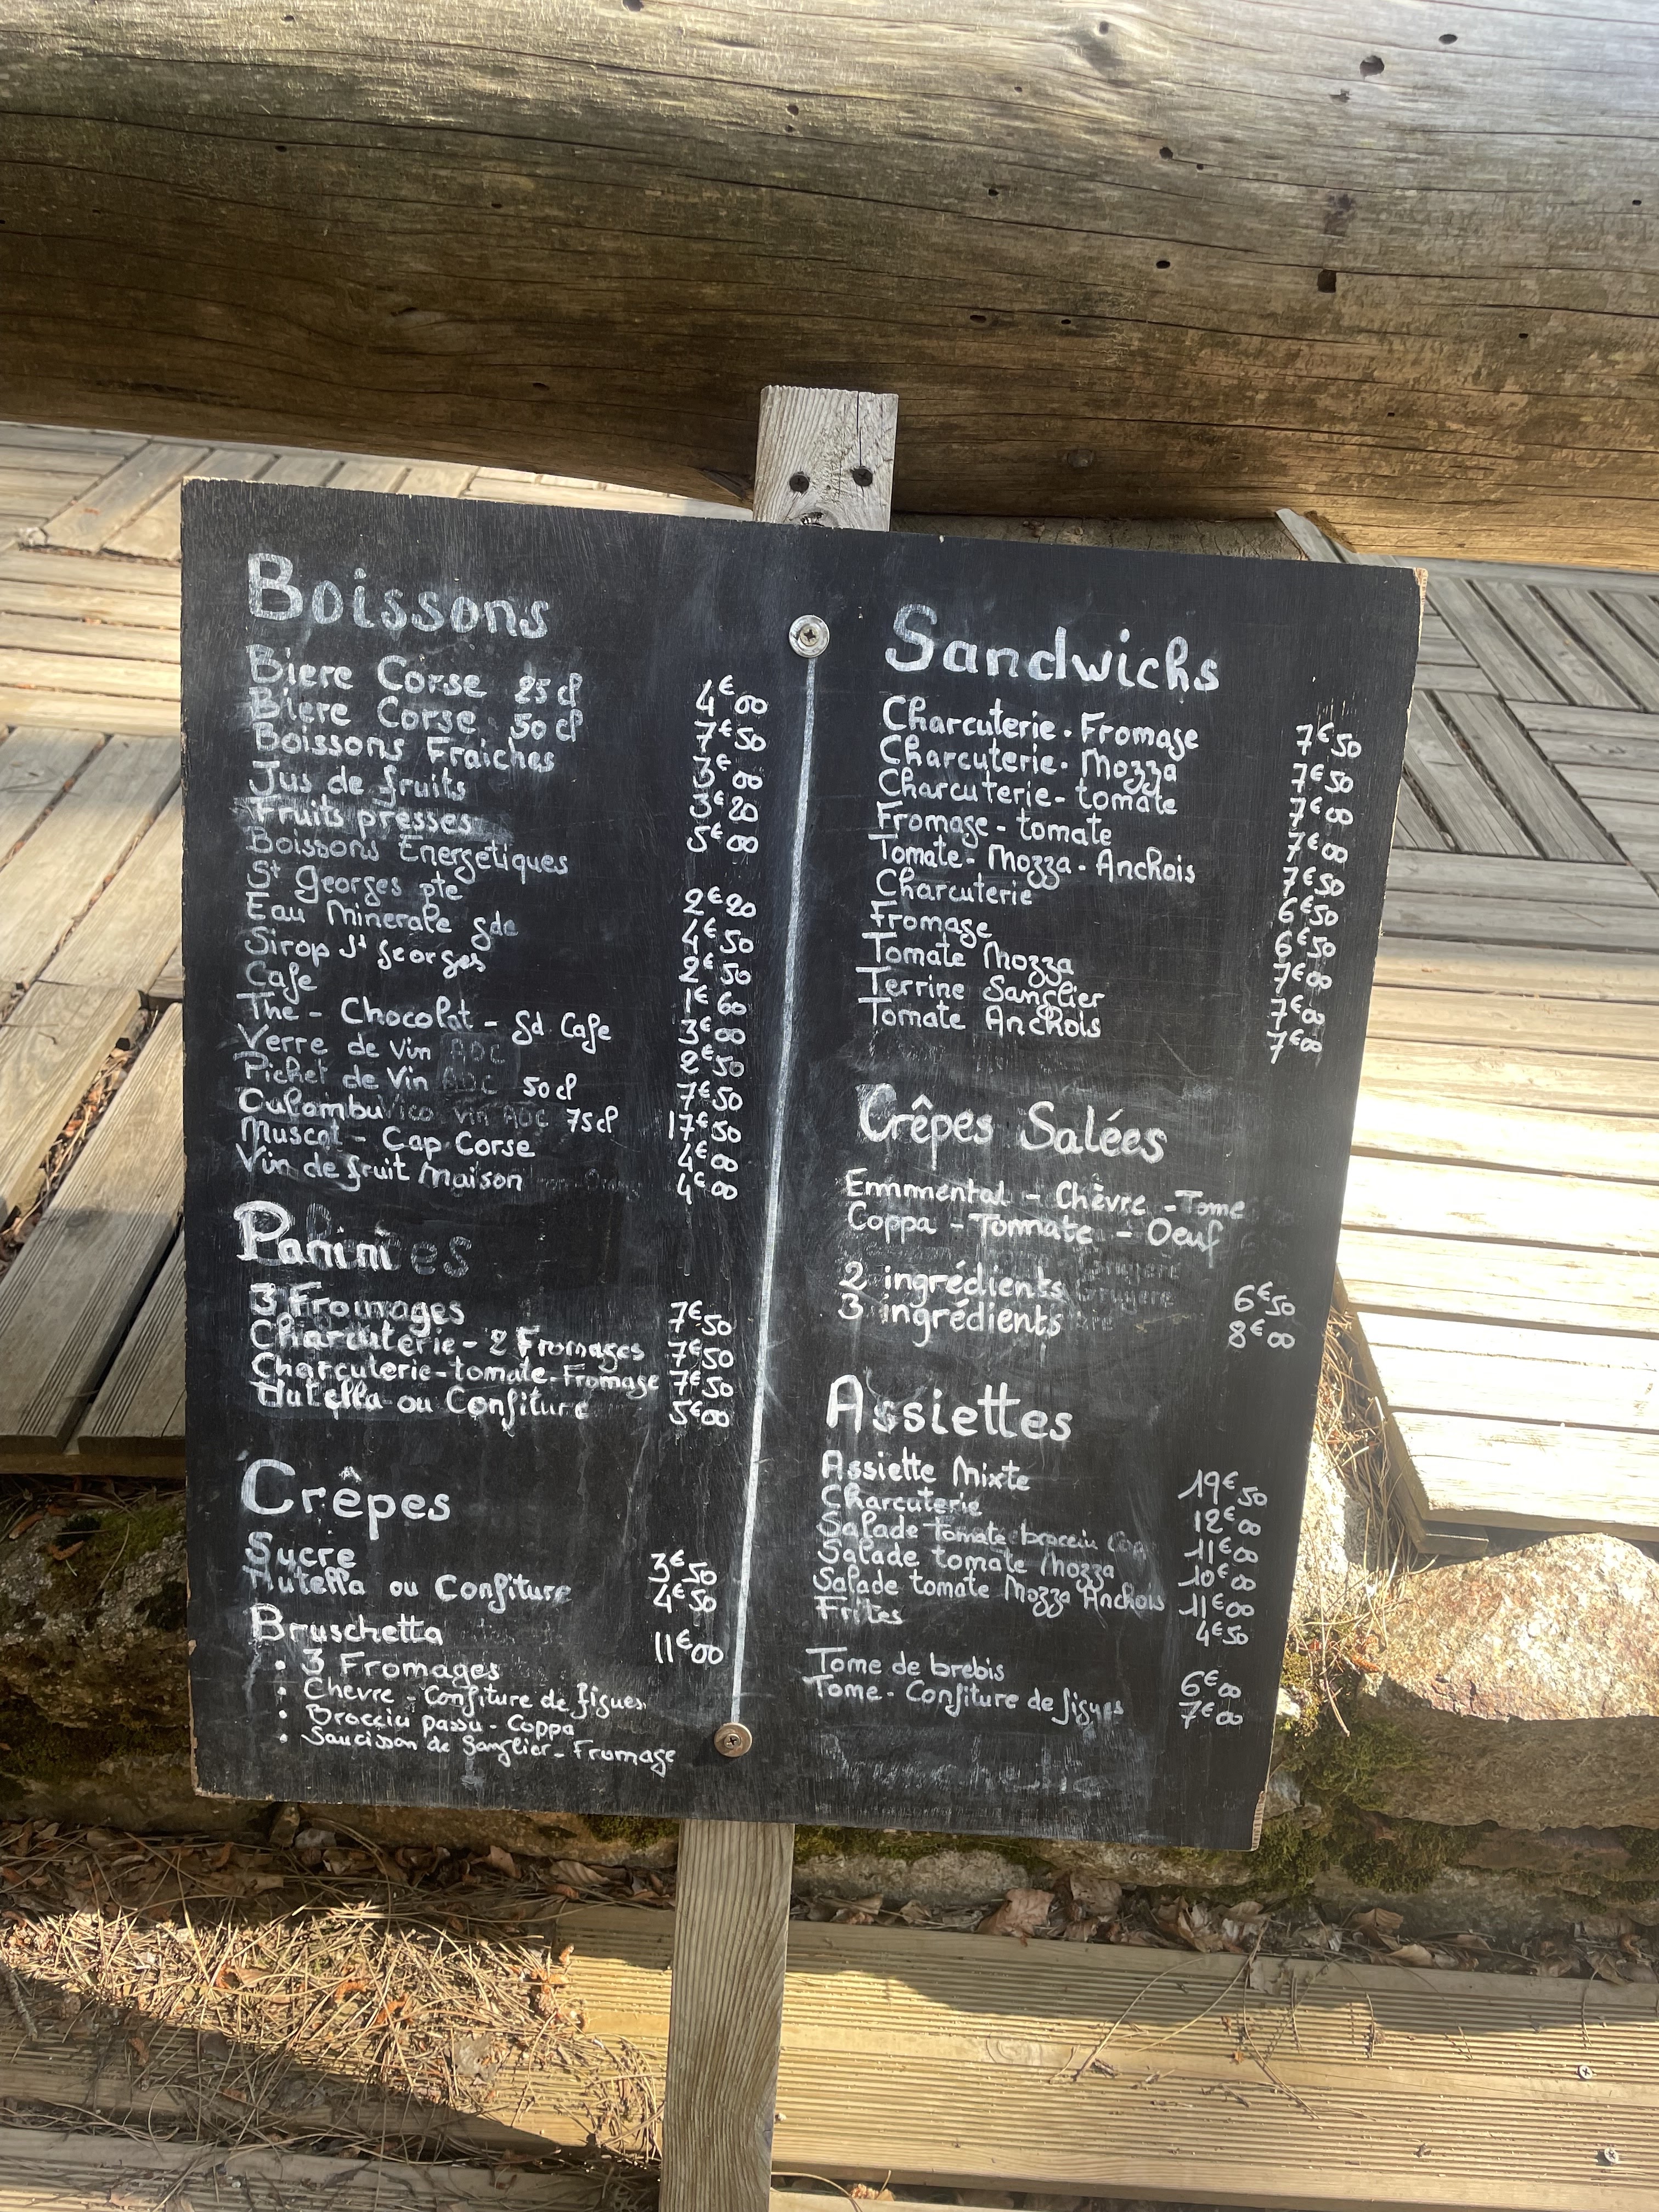 Boissons
Biere Corse 25 cl 4€00
Biere Corse 50 cl 7€50
Boissons Fraiches 3€00
Jus de fruits 3€20
Fruits presses 5€00
Boissons Energetiques
St Georges pte 2€20
Eau Minerale gde 4€50
Sirop St Georges 2€50
Cafe 1€60
The - Chocolat - Gd Cafe 3€00
Verre de Vin AOC 2€50
Pichet de Vin AOC 50 cl 7€50
Oulombu Vico vin AOC 75 cl 17€50
Muscat - Cap Corse 4€00
Vin de fruit Maison 4€00
Panini
3 Fromages 7€50
Charcuterie - 2 Fromages 7€50
Charcuterie - tomate - Fromage 7€50
Nutella ou Confiture 5€00
Crêpes
Sucre 3€50
Nutella ou Confiture 4€50
Bruschetta 11€00
• 3 Fromages
• Chevre - Confiture de figues
• Brocciu passu - Coppa
• Saucisson de Sanglier - Fromage
Sandwichs
Charcuterie - Fromage 7€50
Charcuterie - Mozza 7€50
Charcuterie - tomate 7€00
Fromage - tomate 7€00
Tomate - Mozza - Anchois 7€50
Charcuterie 6€50
Fromage 6€50
Tomate Mozza 7€00
Terrine Sanglier 7€00
Tomate Anchois 7€00
Crêpes Salées
Emmmental - Chèvre - Tome
Coppa - Tomate - Oeuf
2 ingrédients 6€50
3 ingrédients 8€00
Assiettes
Assiette Mixte 19€50
Charcuterie 12€00
Salade tomate brocciu 11€00
Salade tomate Mozza 10€00
Salade tomate Mozza Anchois 11€00
Frites 4€50
Tome de brebis 6€00
Tome - Confiture de figues 7€00